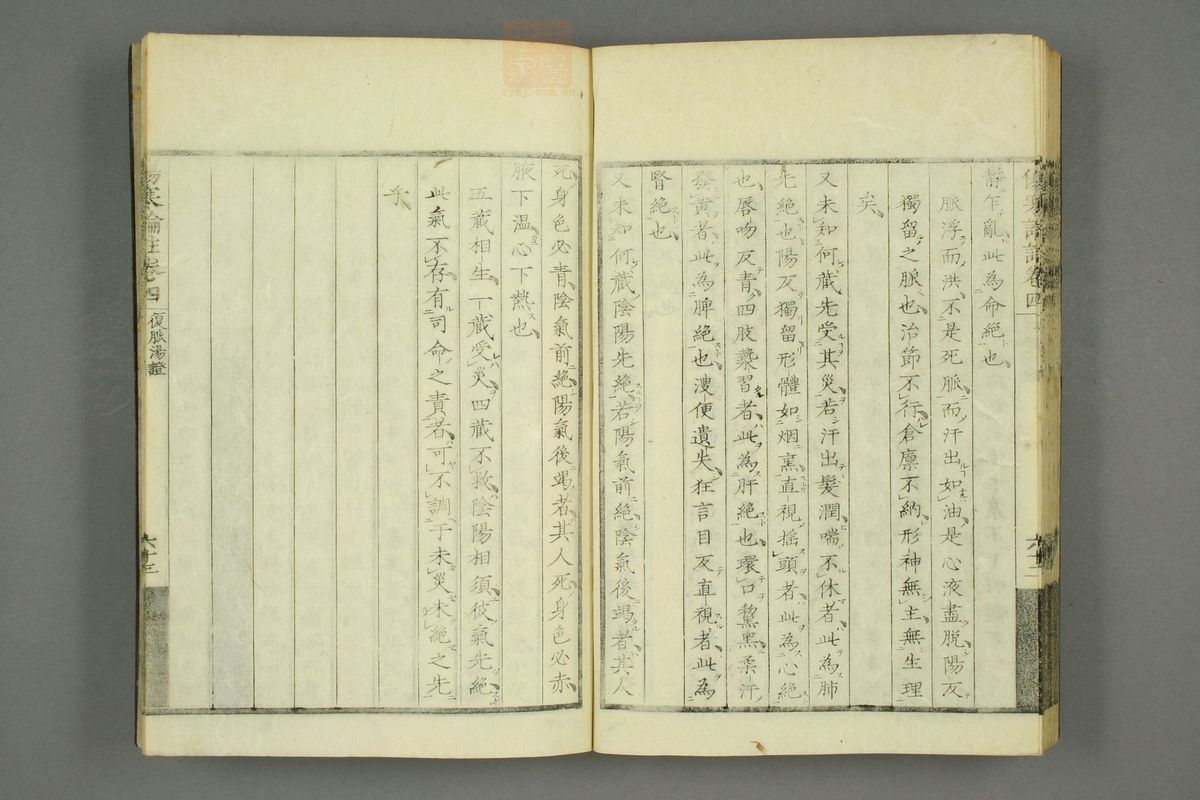 靜乍亂此為命絕也
脈浮而洪不是死脈而汗出如油是心液盡脫陽反
獨留之脈也治節不行倉廩不納形神無主無生理
矣
又未知何藏先受其災若汗出髮潤喘不休者此為肺
先絕也陽反獨留形體如烟熏直視搖頭者此為心絕
也唇吻反青四肢漐習者此為肝絕也環口黧黑柔汗
發黃者此為脾絕也溲便遺失狂言目反直視者此為
腎絕也
又未知何藏陰陽先絕若陽氣前絕陰氣後竭者其人
死身色必青陰氣前絕陽氣後竭者其人死身色必赤
腋下溫心下熱也
五藏相生一藏受災四藏不救陰陽相須彼氣先絕
此氣不存有司命之責者可不調于未災未絕之先
乎
傷寒論註卷四 復脈湯證
六十三
zysj.com.cn